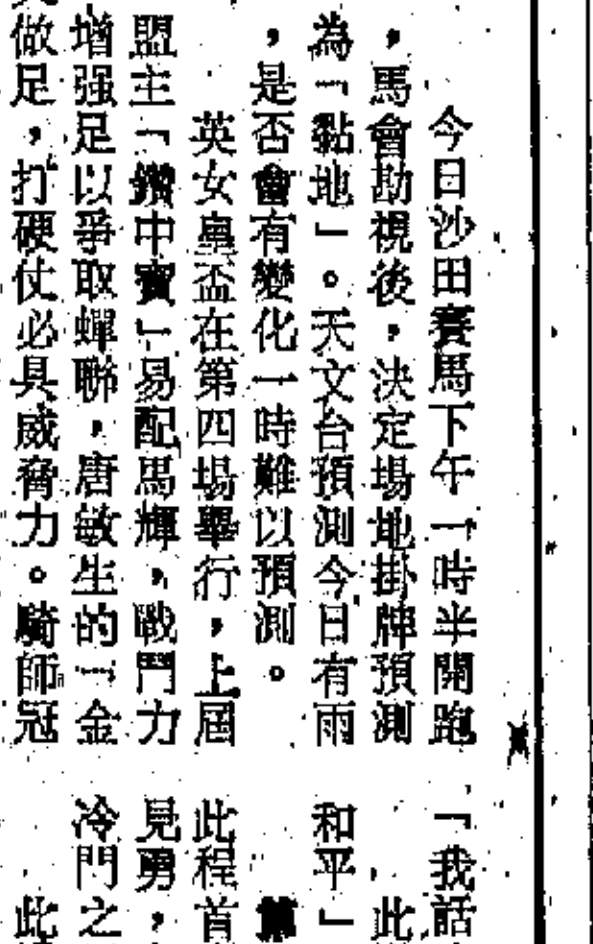 今日沙田賽馬下午一時半開跑
，馬會勘視後，決定場地掛牌預測
為「黏地」。天文台預測今日有雨
，是否會有變化一時難以預測。
英女皇盃在第四場舉行，上屆
盟主「鑽中寶」易配馬輝，戰鬥力
增强足以爭取蟬聯，唐敏生的「金
做足，打硬仗必具威脅力。騎師冠
「我話
此
和平」
此程首
見勇，
冷門之
此